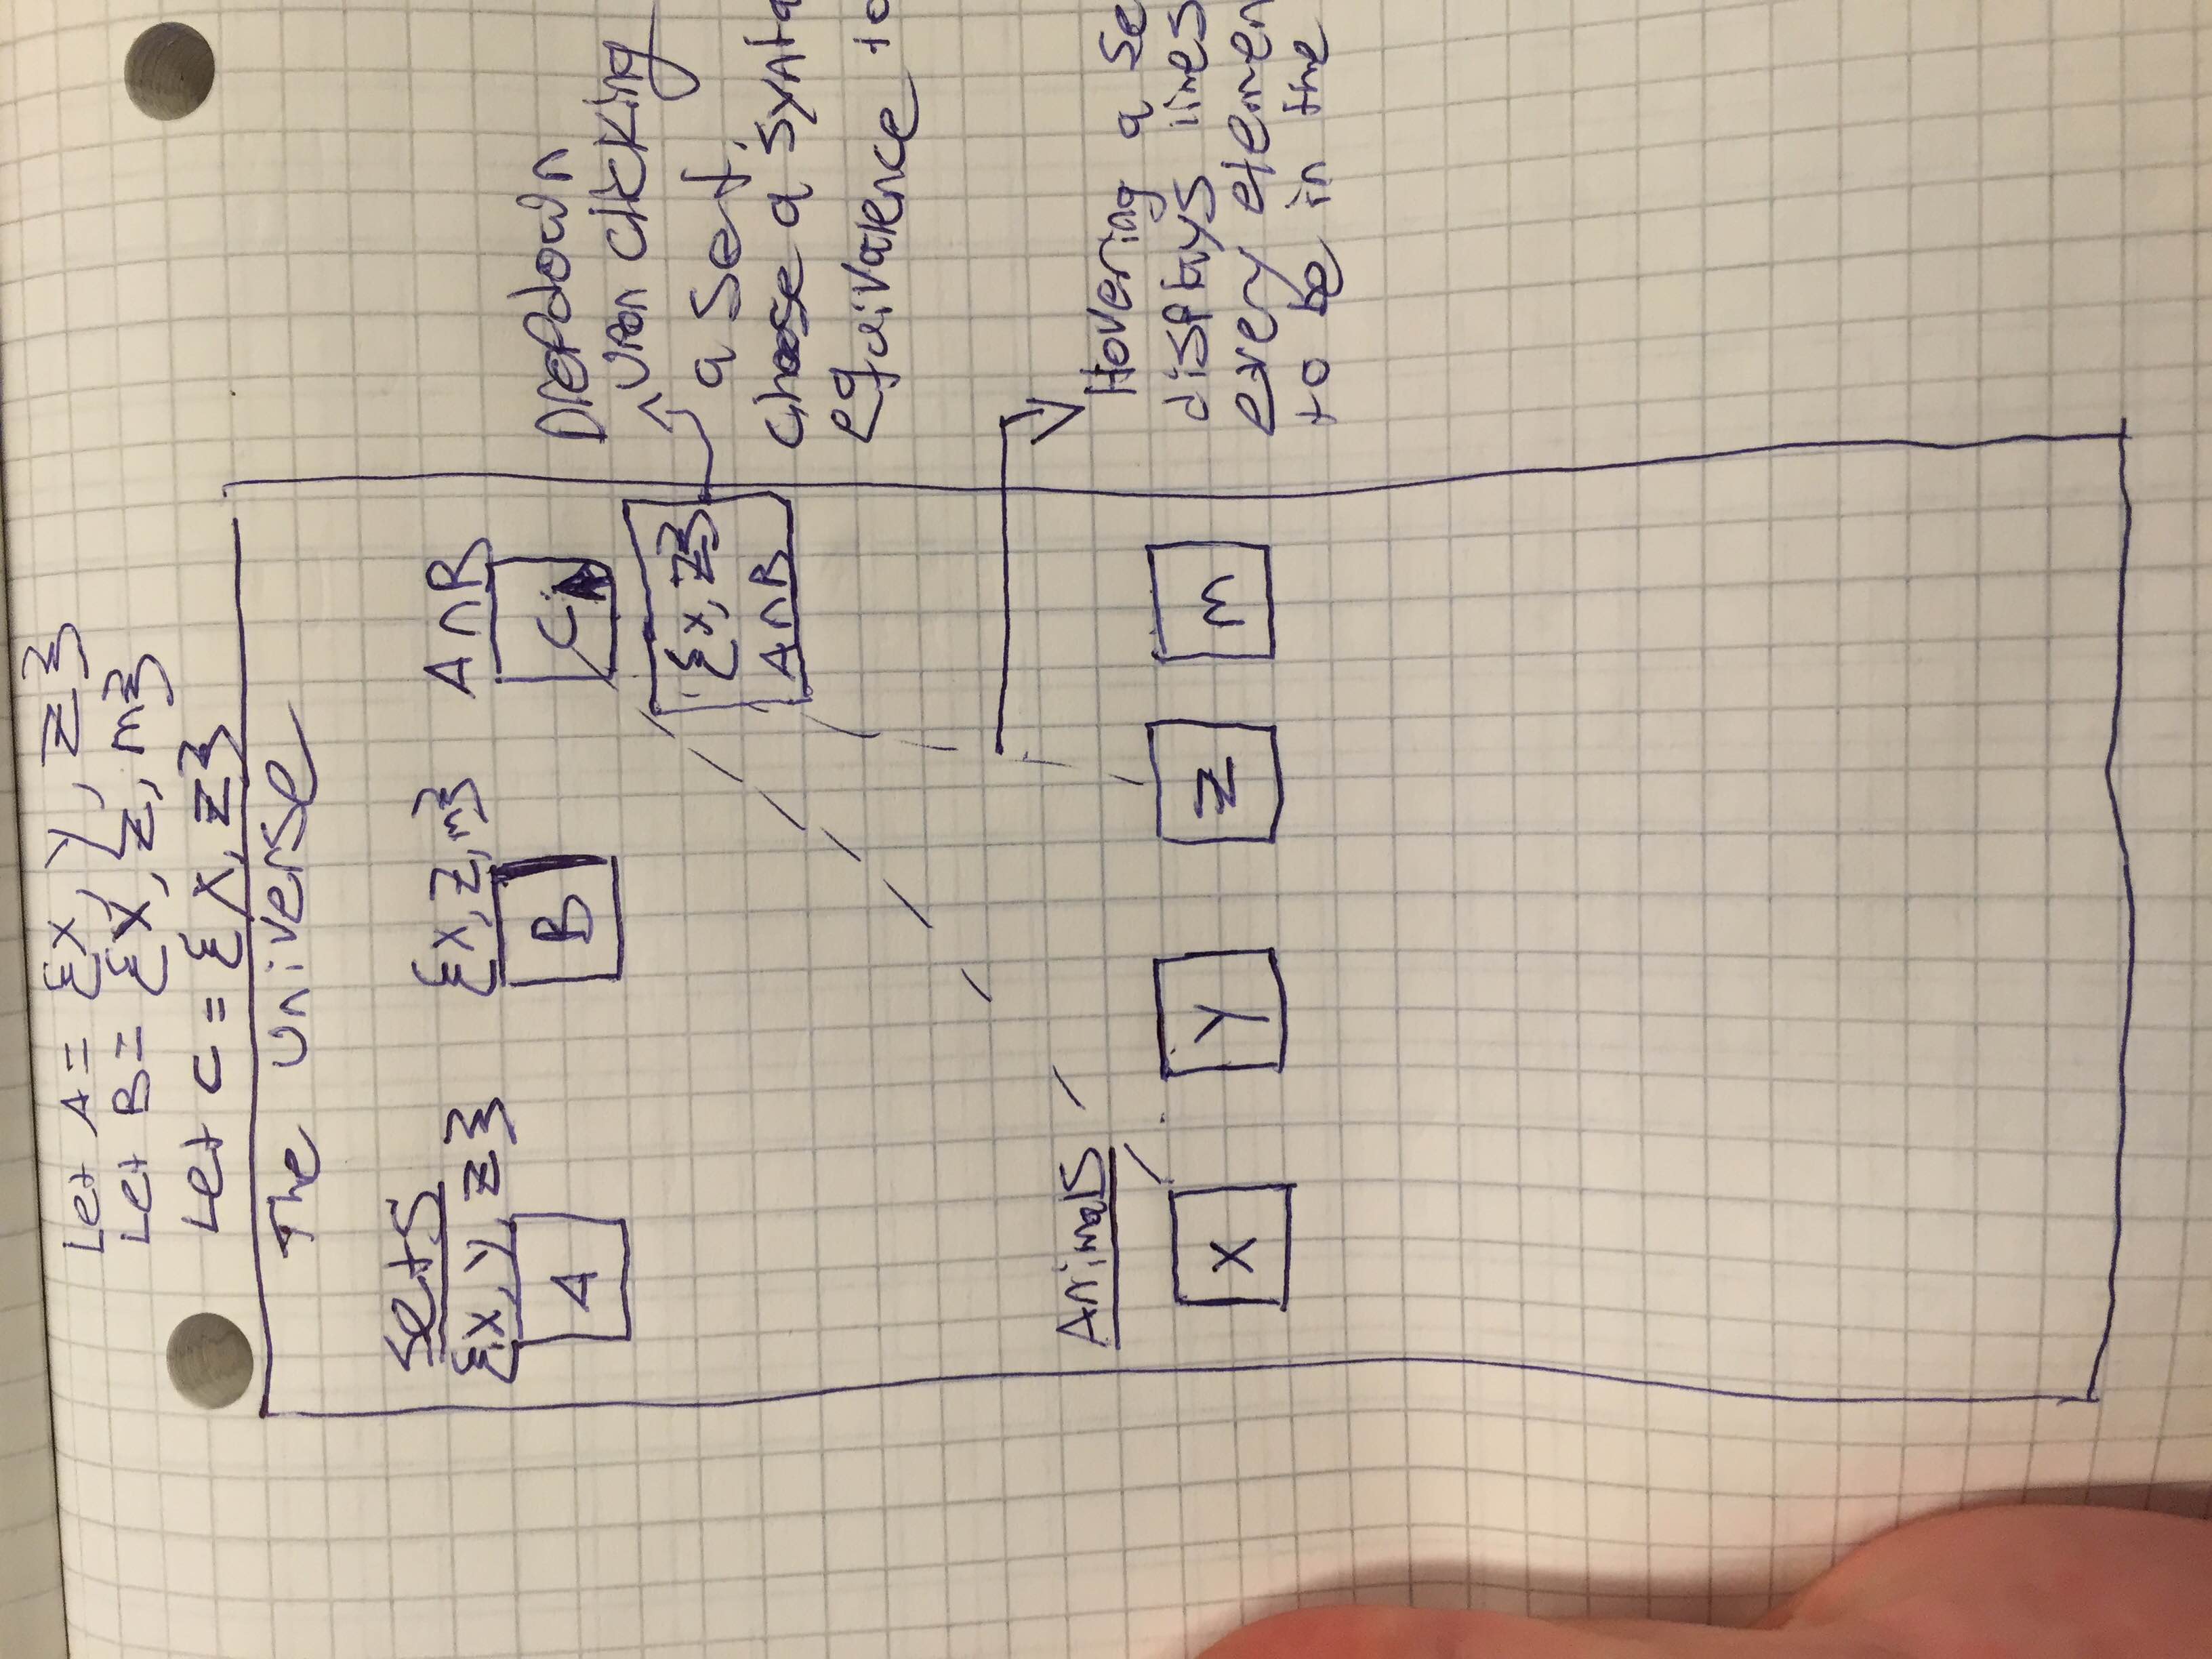 Let A = {x, y, z}
Let B = {x, z, m}
Let C = {x, z}
The Universe
Sets
{x, y, z} {x, z, m} A∩B
A B C
Dropdown
upon clicking
a set.
{x, z}
A∩B
choose a synta
equivalence to
Animals
x y z m
Hovering a se
displays lines
every elemen
to be in the